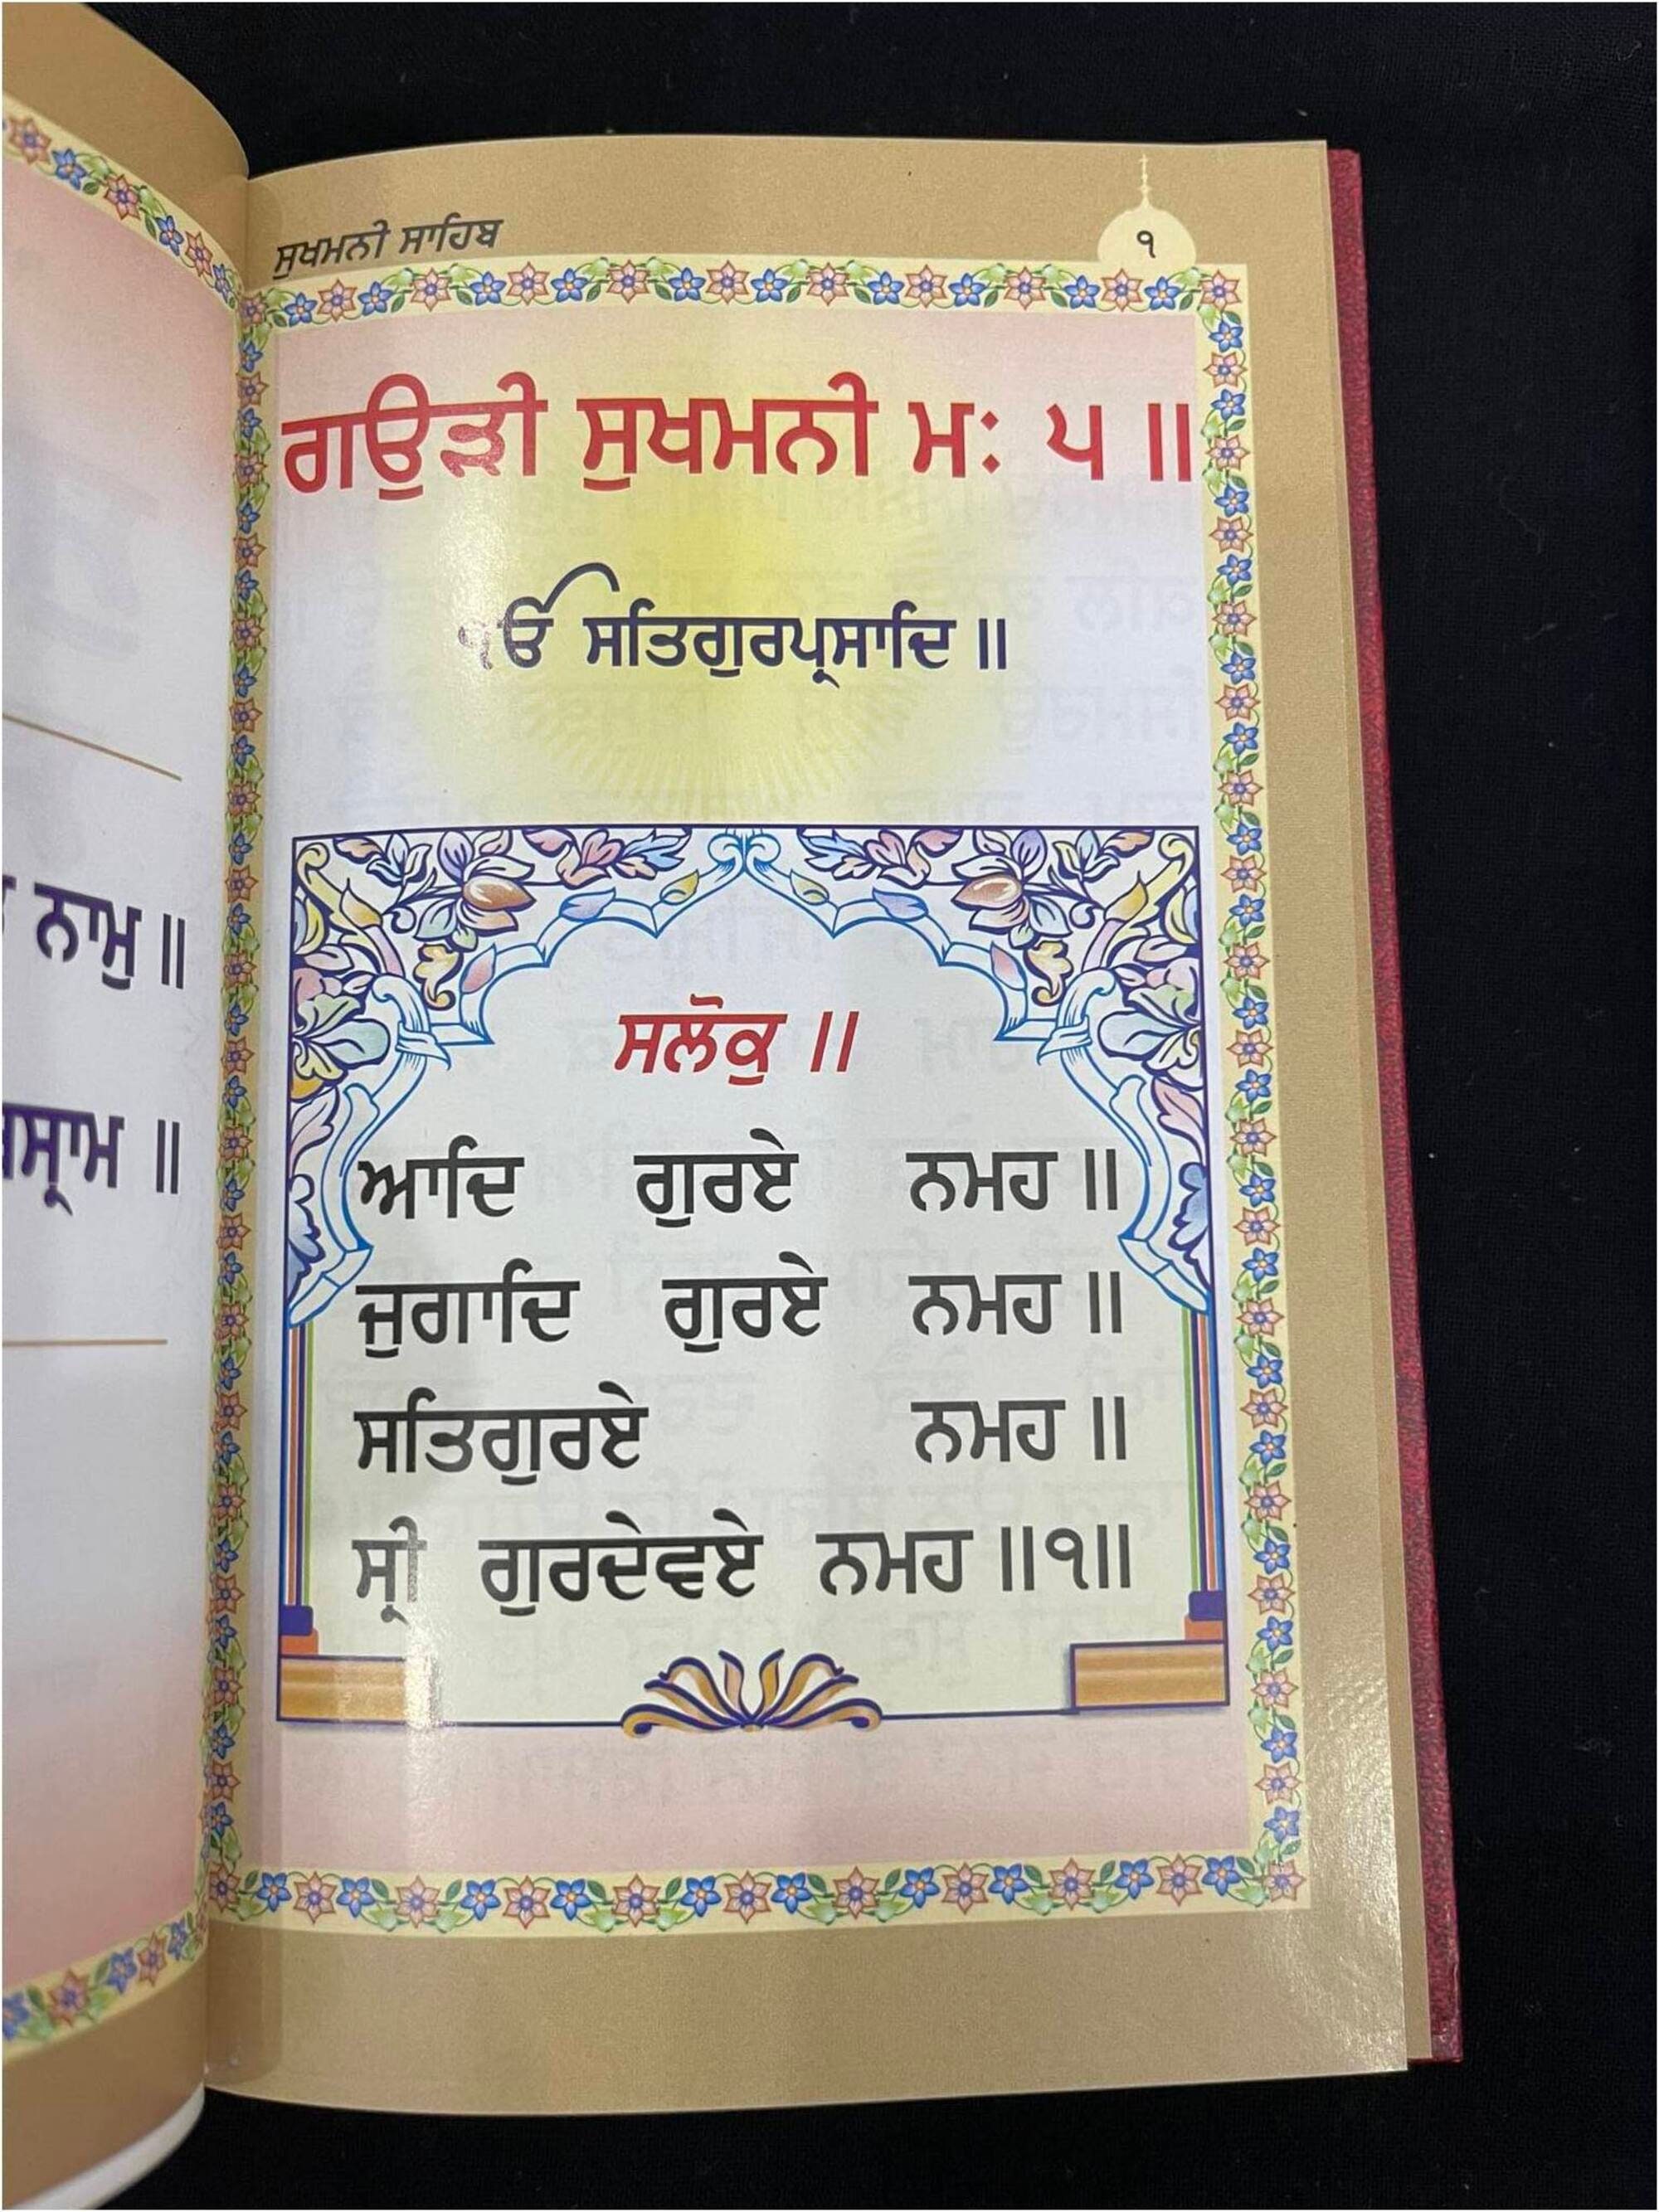 ਸੁਖਮਨੀ ਸਾਹਿਬ
੧
ਗਉੜੀ ਸੁਖਮਨੀ ਮਃ ੫ ॥
ੴ ਸਤਿਗੁਰਪ੍ਰਸਾਦਿ ॥
ਸਲੋਕੁ ॥
ਆਦਿ ਗੁਰਏ ਨਮਹ ॥
ਜੁਗਾਦਿ ਗੁਰਏ ਨਮਹ ॥
ਸਤਿਗੁਰਏ ਨਮਹ ॥
ਸ੍ਰੀ ਗੁਰਦੇਵਏ ਨਮਹ ॥੧॥
ਨਾਮੁ ॥